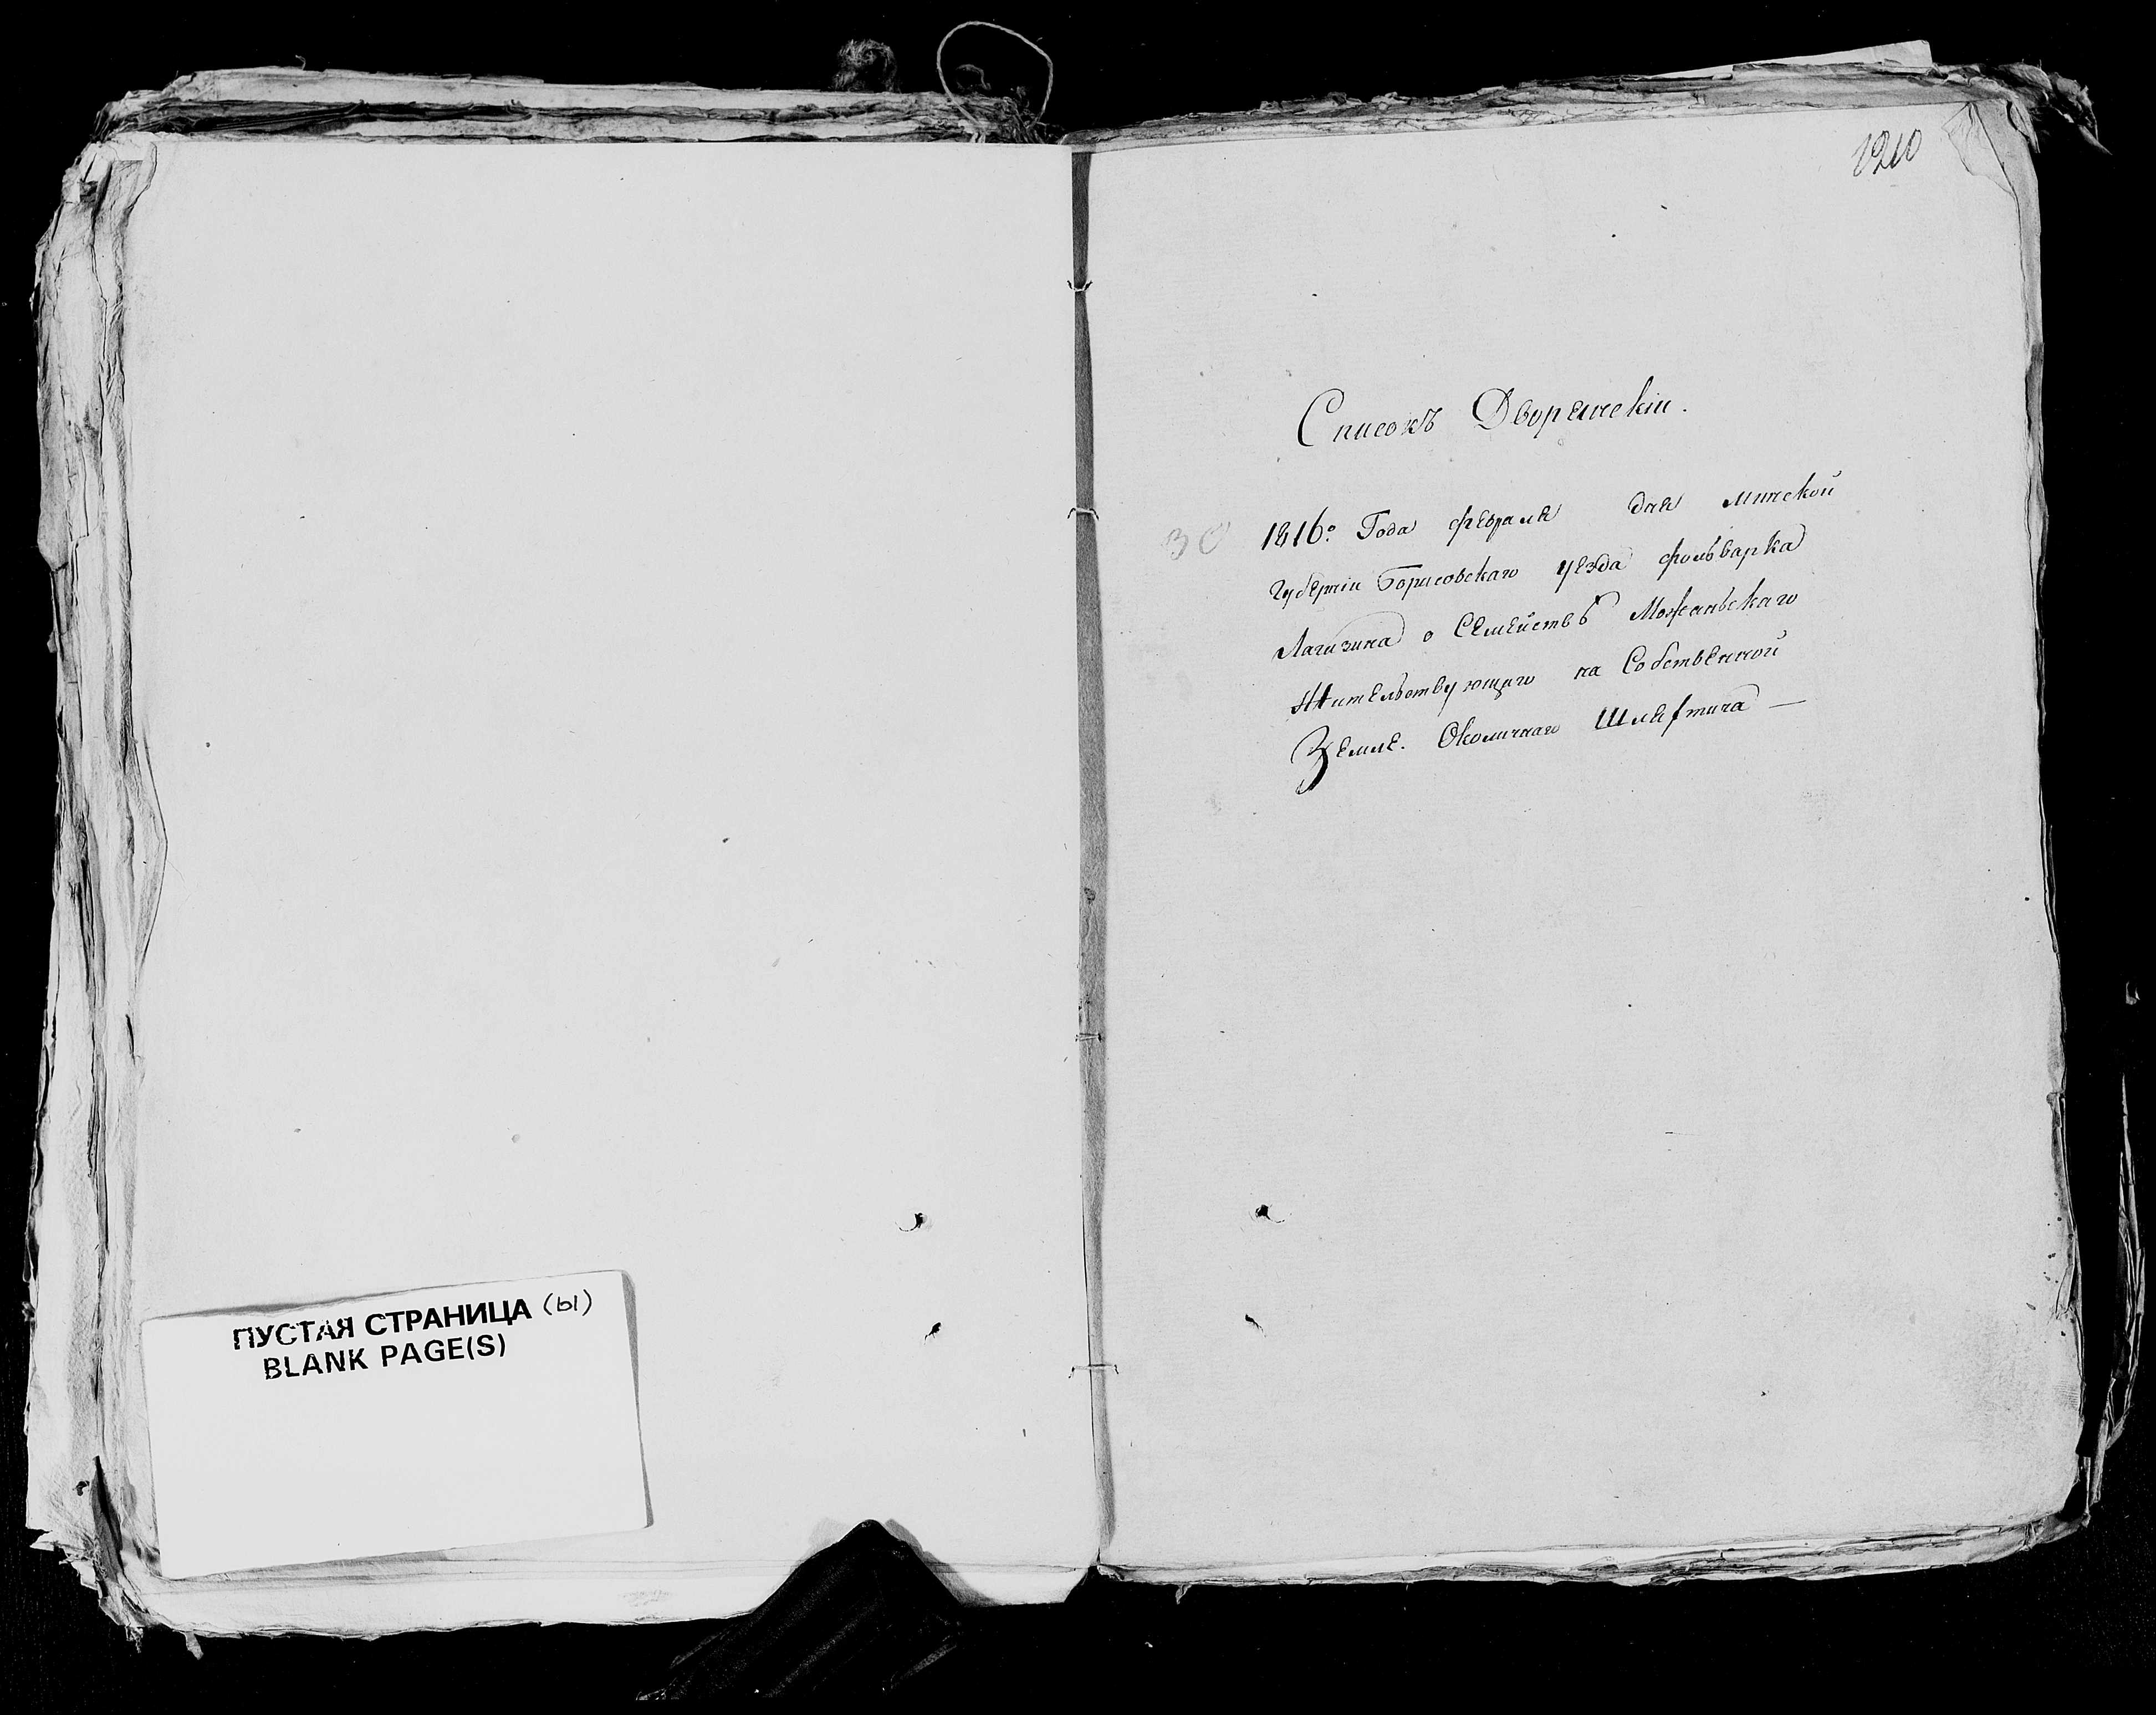 ПУСТАЯ СТРАНИЦА (ы)
BLANK PAGE(S)
1210
Списокъ Дворянскiи.
30
1816º Года февраля дня минской
Губернiи Борисовскаго уезда фольварка
Лагизина о Семействѣ Можаньскаго
Жительствующаго на Собственной
Земле. Околичнаго Шляхтича —